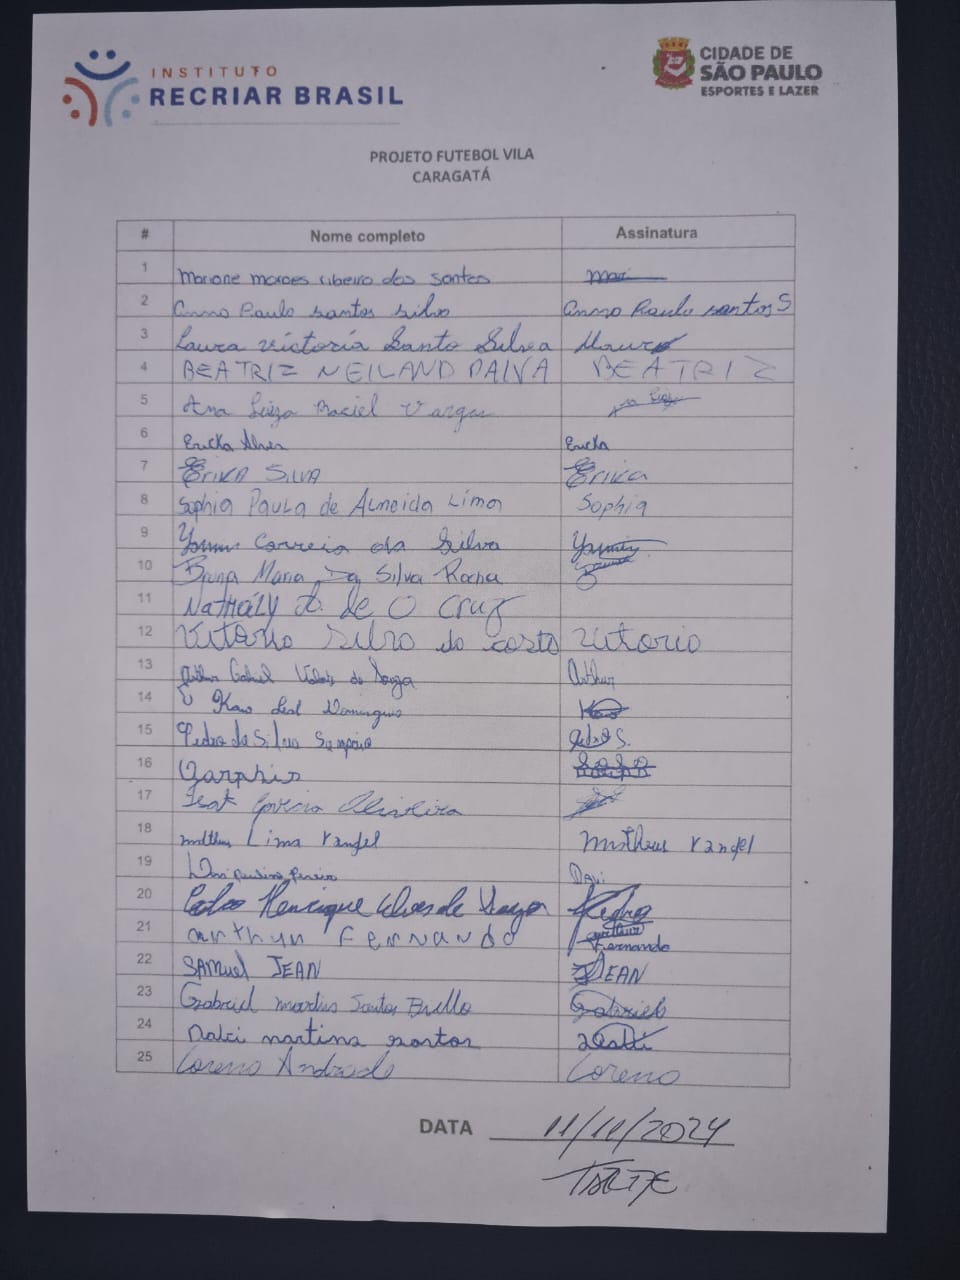 INSTITUTO
RECRIAR BRASIL
CIDADE DE
SÃO PAULO
ESPORTES E LAZER
PROJETO FUTEBOL VILA
CARAGATÁ
# Nome completo Assinatura
1 moraes ribeiro dos santos
2 Paulo santos silva Paulo santos S
3 Laura victoria Santo Silva
4 BEATRIZ NEILAND PAIVA BEATRIZ
5 Ana Luiza Maciel Vargas
6 Ericka Alves Ericka
7 ERIKA SILVA Erika
8 Sophia Paula de Almeida Lima Sophia
9 Correia da Silva
10 Maria Da Silva Rocha
11 Nathály A. de O Cruz
12 Vitorio Silva da costa Vitorio
13 Gabriel de Souza Arthur
14 Leal Domingues
15 Pedro da Silva Sampaio
16
17 Gouveia Oliveira
18 matheus Lima rangel Matheus rangel
19 Davi
20 Pedro Henrique Alves de Souza Pedro
21 arthur FERNANDO Arthur Fernando
22 SAMUEL JEAN JEAN
23 Gabriel martins Santos Brillo Gabriel
24 Dalci martins santos
25 Loreno Andrade Loreno
DATA 11/11/2024
TARDE